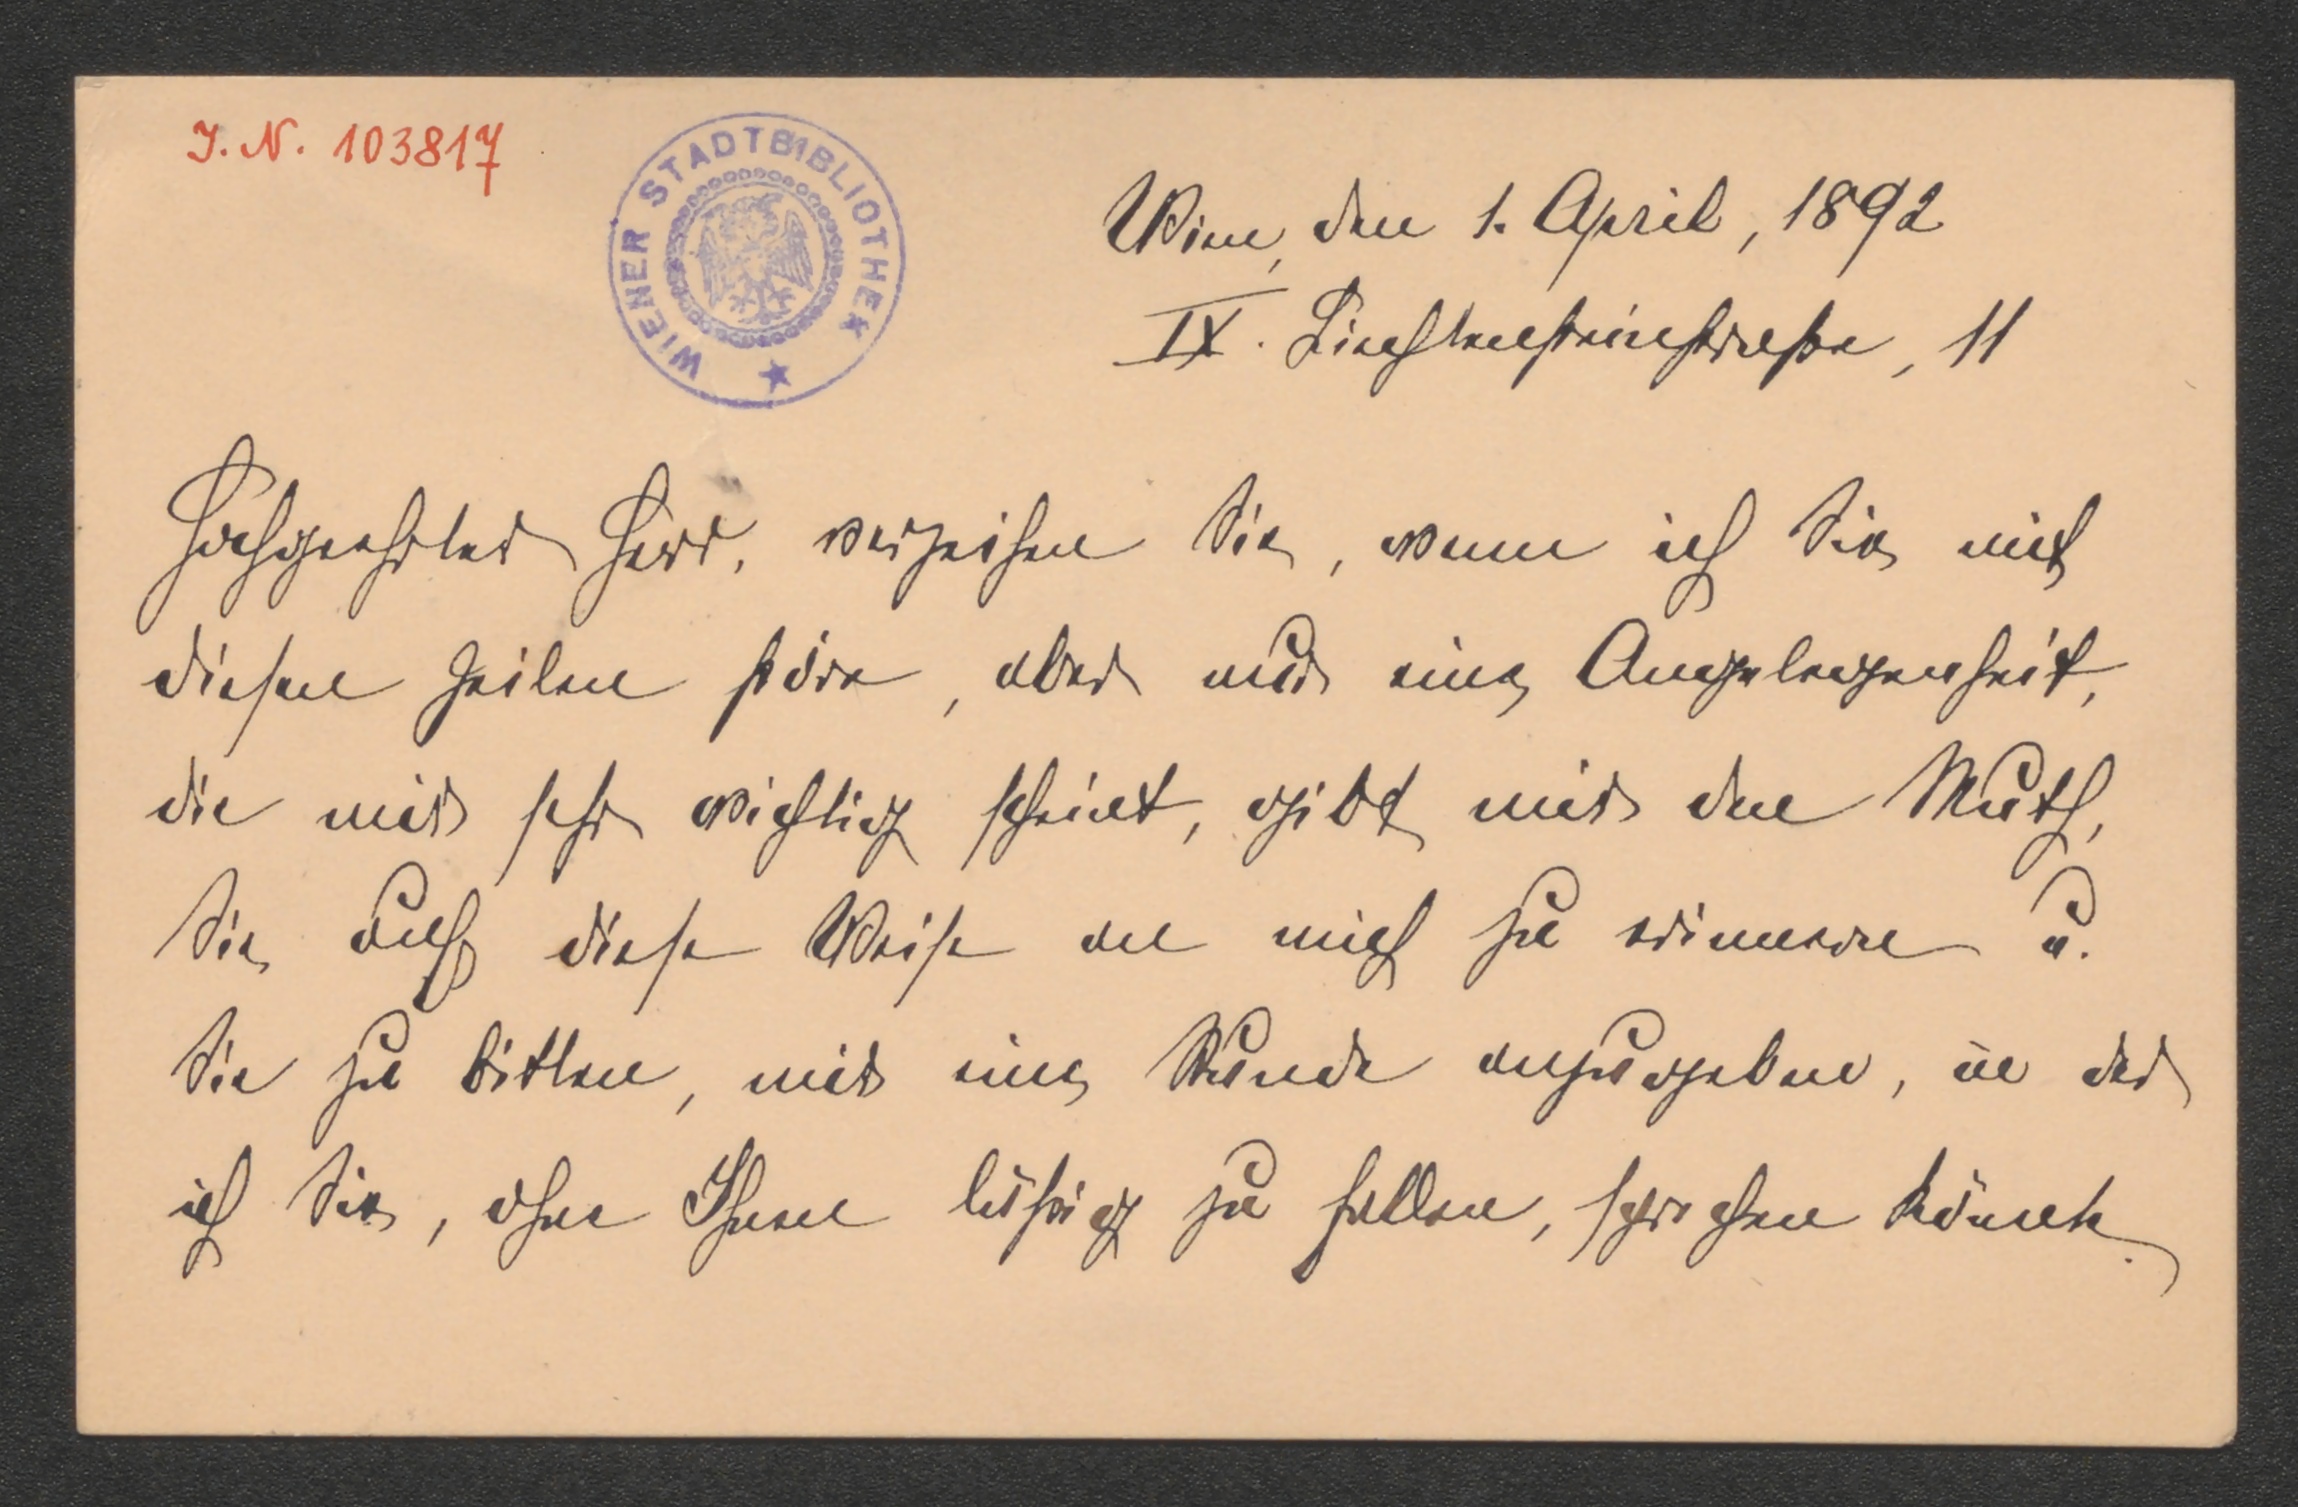 J. N. 103817
WIENER STADTBIBLIOTHEK
Wien, den 1. April, 1892
IX. Liechtensteinstraße, 11
Hochgeehrter Herr, verzeihen Sie, wenn ich Sie mit
diesen Zeilen störe, aber nur eine Angelegenheit,
die mir sehr wichtig scheint, gibt mir den Muth,
Sie auf diese Weise an mich zu erinnern u.
Sie zu bitten, mir eine Stunde anzugeben, in der
ich Sie, ohne Ihnen lästig zu fallen, sprechen könnte.